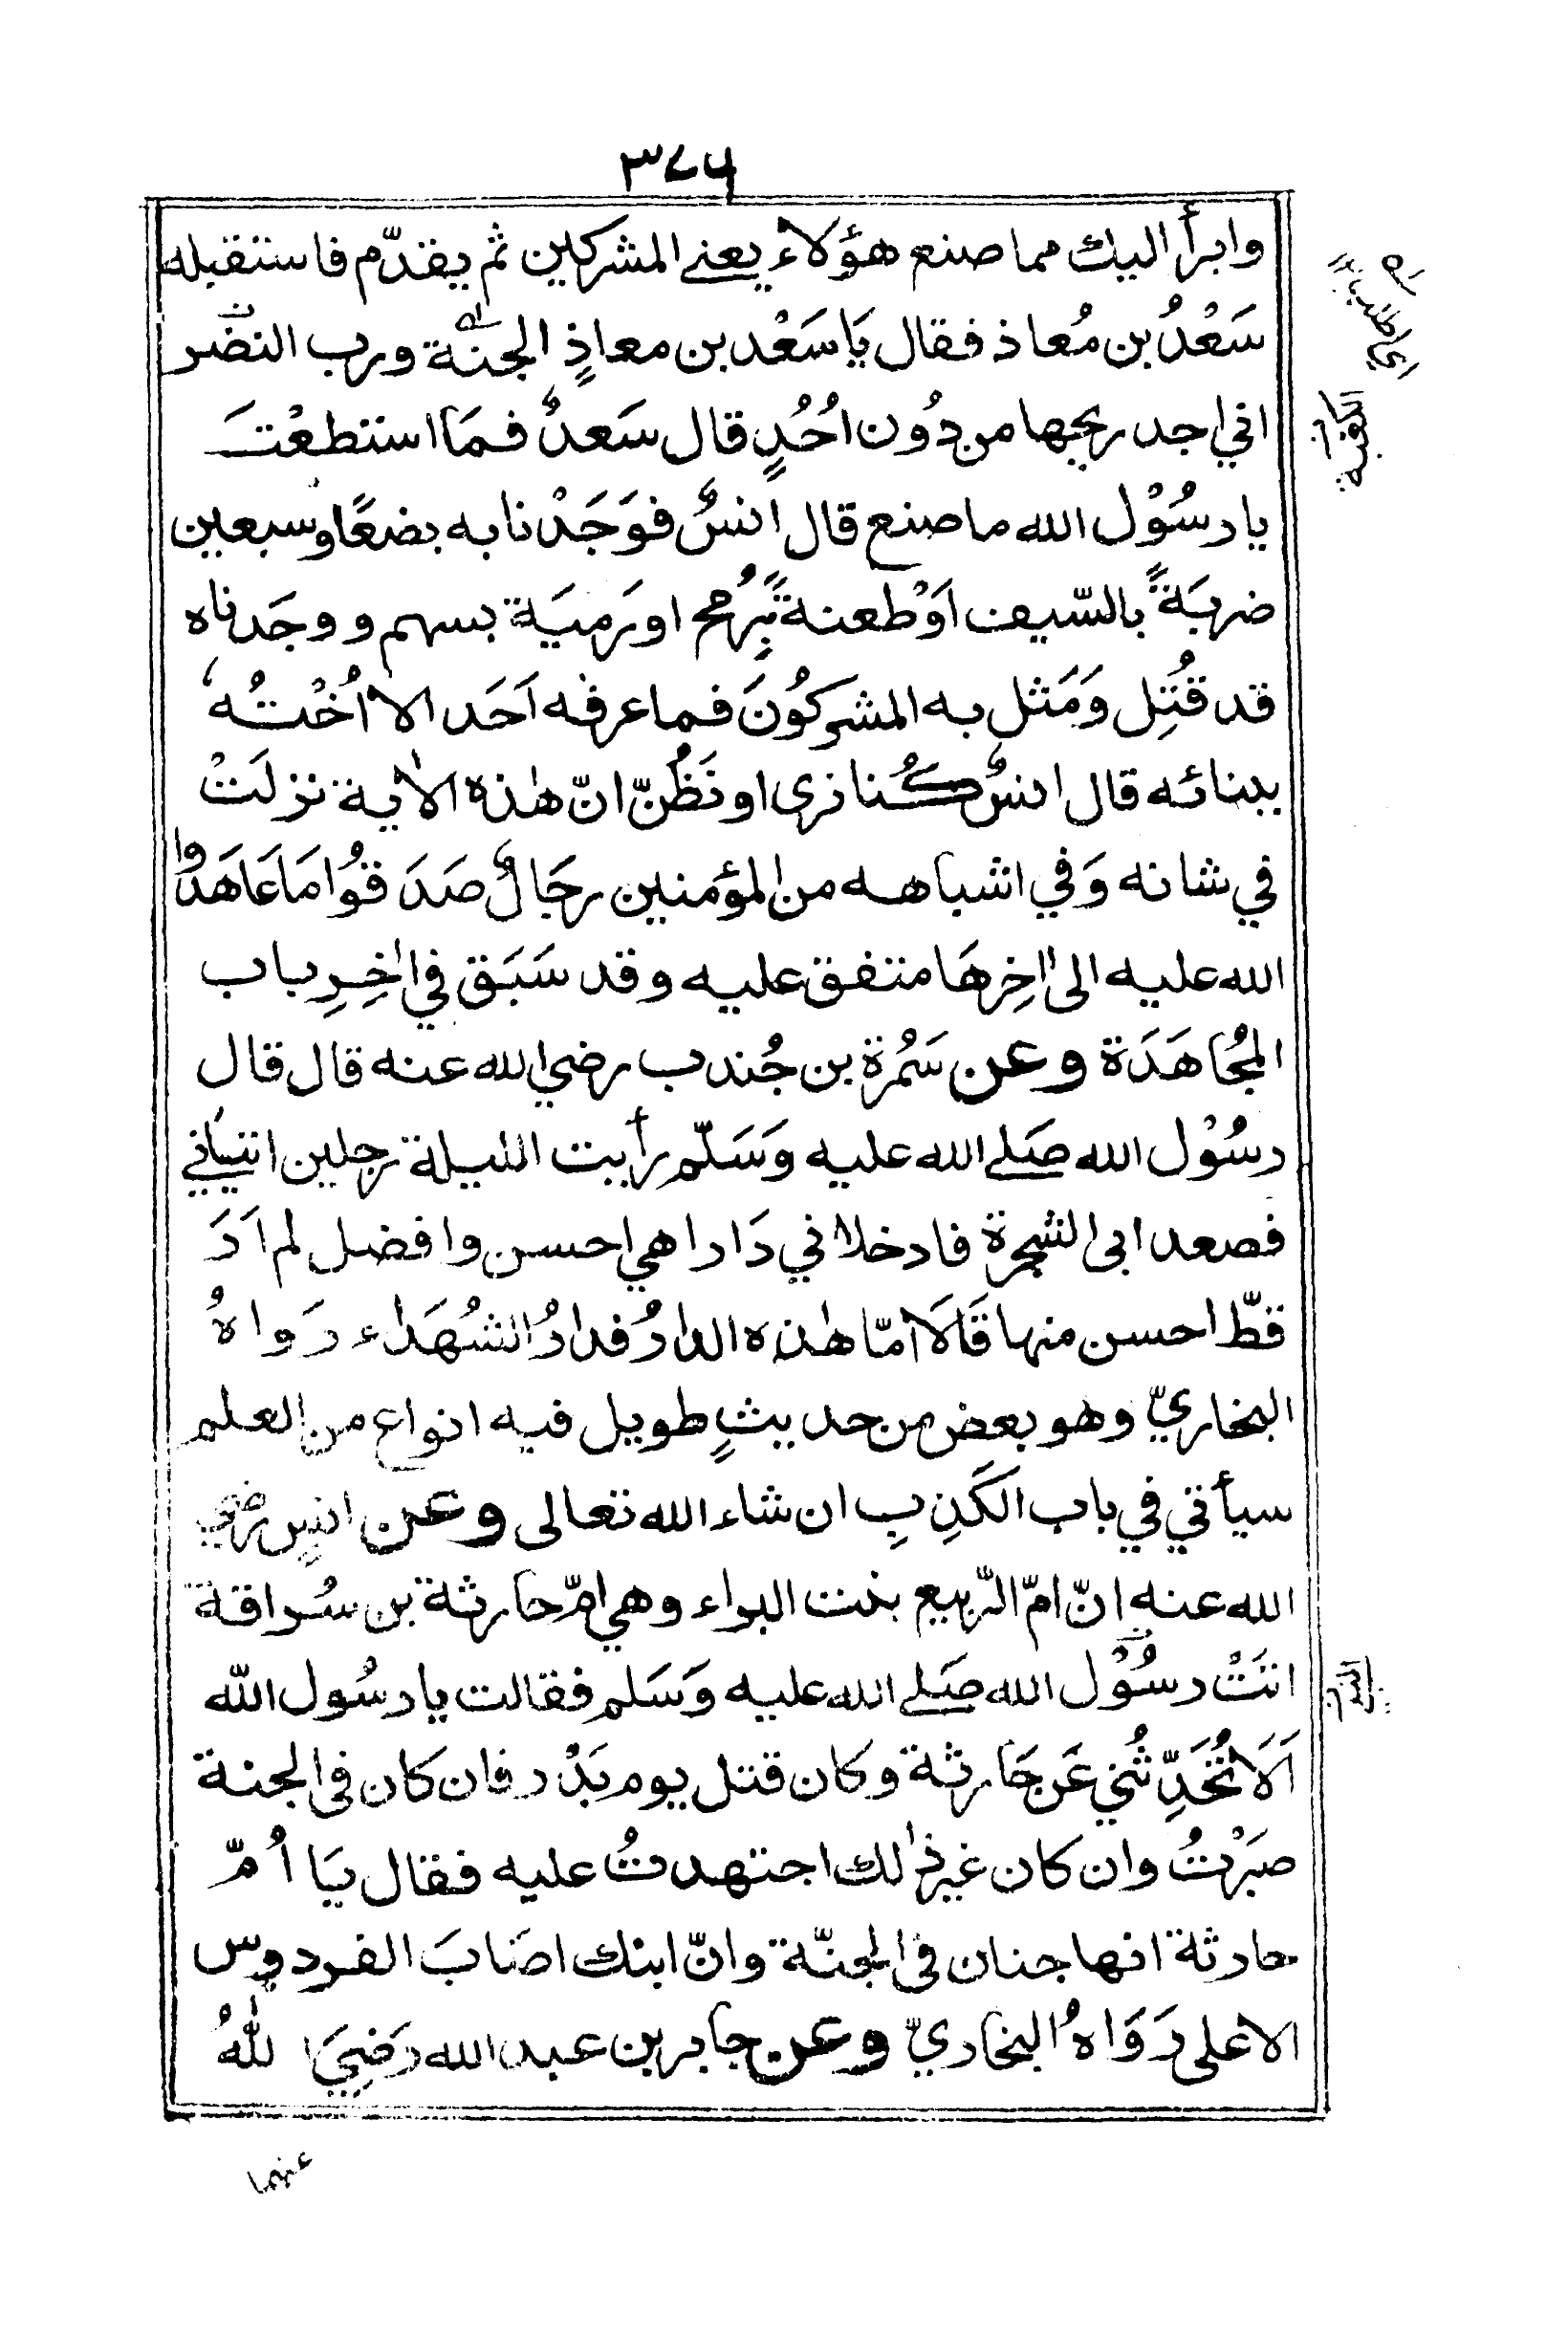 ٣٧٦
وابرأ اليك مما صنع هؤلاء يعني المشركين ثم يقدّم فاستقبله
سَعْدُ بن مُعاذ فقال يَا سَعْد بن معاذٍ الجنّة ورب النضر
اني اجد ريحها من دُون اُحُدٍ قال سَعدٌ فمَا استطعْتَ
يا رسُوْل الله ما صنع قال انسٌ فوَجَدْنا به بضعًا وسبعين
ضربَةً بالسّيف اَوْ طعنةً بِرُمح او رَميَة بسهم ووجَدناه
قد قُتِل وَمَثل به المشركُونَ فما عرفه اَحَد الا اُخْتُه
ببنائه قال انسٌ كُنا نرى او نَظُنّ انّ هٰذه الاٰية نزلَتْ
في شانه وَفي اشباهه من المؤمنين رجَالٌ صَدَقُوا مَا عَاهَدُوا
الله عليه الى اٰخِرهَا متفق عليه وقد سَبَق في اٰخِرِ باب
المجُاهَدَة وعن سَمُرة بن جُندب رضي الله عنه قال قال
رسُوْل الله صَلى الله عليه وَسَلّم رأيت الليلة رجلين اتيَاني
فصعدا بى الشجرة فادخلا ني دَارا هي احسن وافضل لم اَرَ
قطّ احسن منها قَالَا امّا هٰذه الدارُ فدارُ الشُهَداء رَواهُ
البخاريّ وهو بعض من حديثٍ طويل فيه انواع من العلم
سيأتي في باب الكَذِبِ ان شاء الله تعالى وعن انسٍ رضي
الله عنه انّ امّ الرّبيع بنت البراء وهي امّ حارثة بن سُراقة
اتتَْ رسُوْل الله صَلى الله عليه وَسَلم فقالت يا رسُول الله
اَلَا تُحَدِّثُني عَن حَارثة وكان قتل يوم بَدْر فان كان فى الجنة
صبَرْتُ وان كان غير ذٰلك اجتهدتُ عليه فقال يَا اُمّ
حارثة انها جنان فى الجنّة وانّ ابنك اصَابَ الفردوس
الاعلى رَوَاهُ البخاريّ وعن جابر بن عبد الله رَضِيَ اللهُ
عنهما